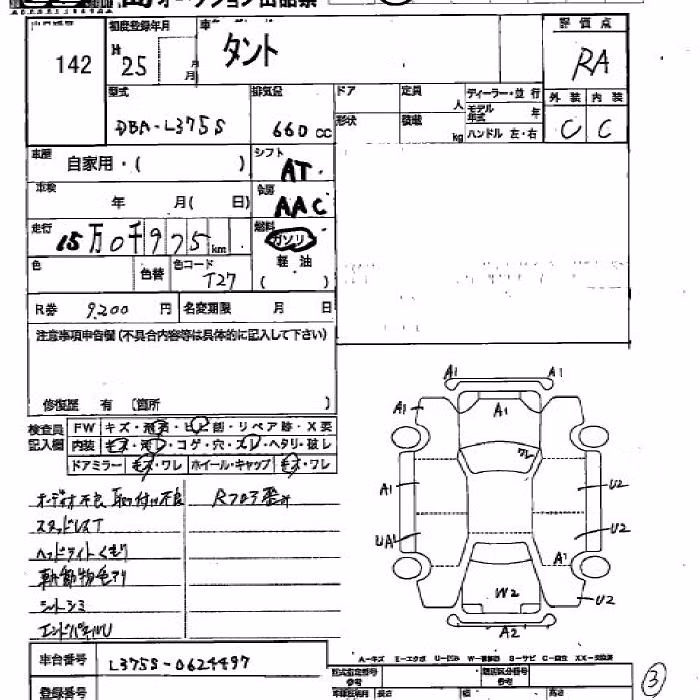 オークション出品票
初度登録年月
評価点
142
H
25
月
月
タント
RA
型式
排気量
ドア
定員
人
ディーラー・並行
モデル年式
年
ハンドル 左・右
外装
内装
DBA-L375S
660 cc
形状
積載
kg
C
C
車歴
自家用・( )
シフト
AT
車検
年 月( 日)
AAC
走行
15万0千975 km
燃料
ガソリン
軽油
( )
色
色替
色コード
T27
R券 9,200 円
名変期限 月 日
注意事項申告欄(不具合内容等は具体的に記入して下さい)
修復歴 有 〔箇所 )
検査員
記入欄
FW
キズ・飛石・ヒビ割・リペア跡・X要
内装
キズ・汚レ・コゲ・穴・スレ・ヘタリ・破レ
ドアミラー
キズ・ワレ
ホイール・キャップ
キズ・ワレ
オーディオ不良 取付け不良
スタッドレスT
ヘッドライトくもり
動物毛アリ
シートシミ
エンドパネルU
A1
A1
A1
A1
A1
ワレ
A1
U2
UA1
U2
A1
W2
U2
A2
A-キズ E-エクボ U-凹み W-補修跡 S-サビ C-腐食 XX-交換済
車台番号
L375S-0624497
登録番号
型式指定番号
参考
類別区分番号
参考
長さ
幅
高さ
③